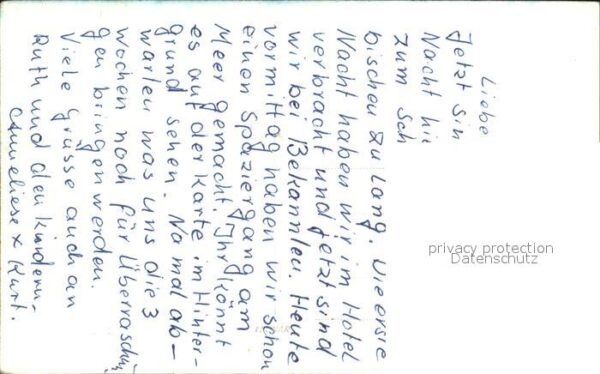 Liebe
Jetzt sin
Nacht hi
zum Sch
bischen zu lang. Die erste
Nacht haben wir im Hotel
verbracht und jetzt sind
wir bei Bekannten. Heute
vormittag haben wir schon
einen Spaziergang am
Meer gemacht. Ihr könnt
es auf der Karte im Hinter-
grund sehen. Na mal ab-
warten was uns die 3
Wochen noch für Überraschun
gen bringen werden.
Viele Grüsse auch an
Ruth und den Kindern.
Anneliese x Kurt.
privacy protection
Datenschutz